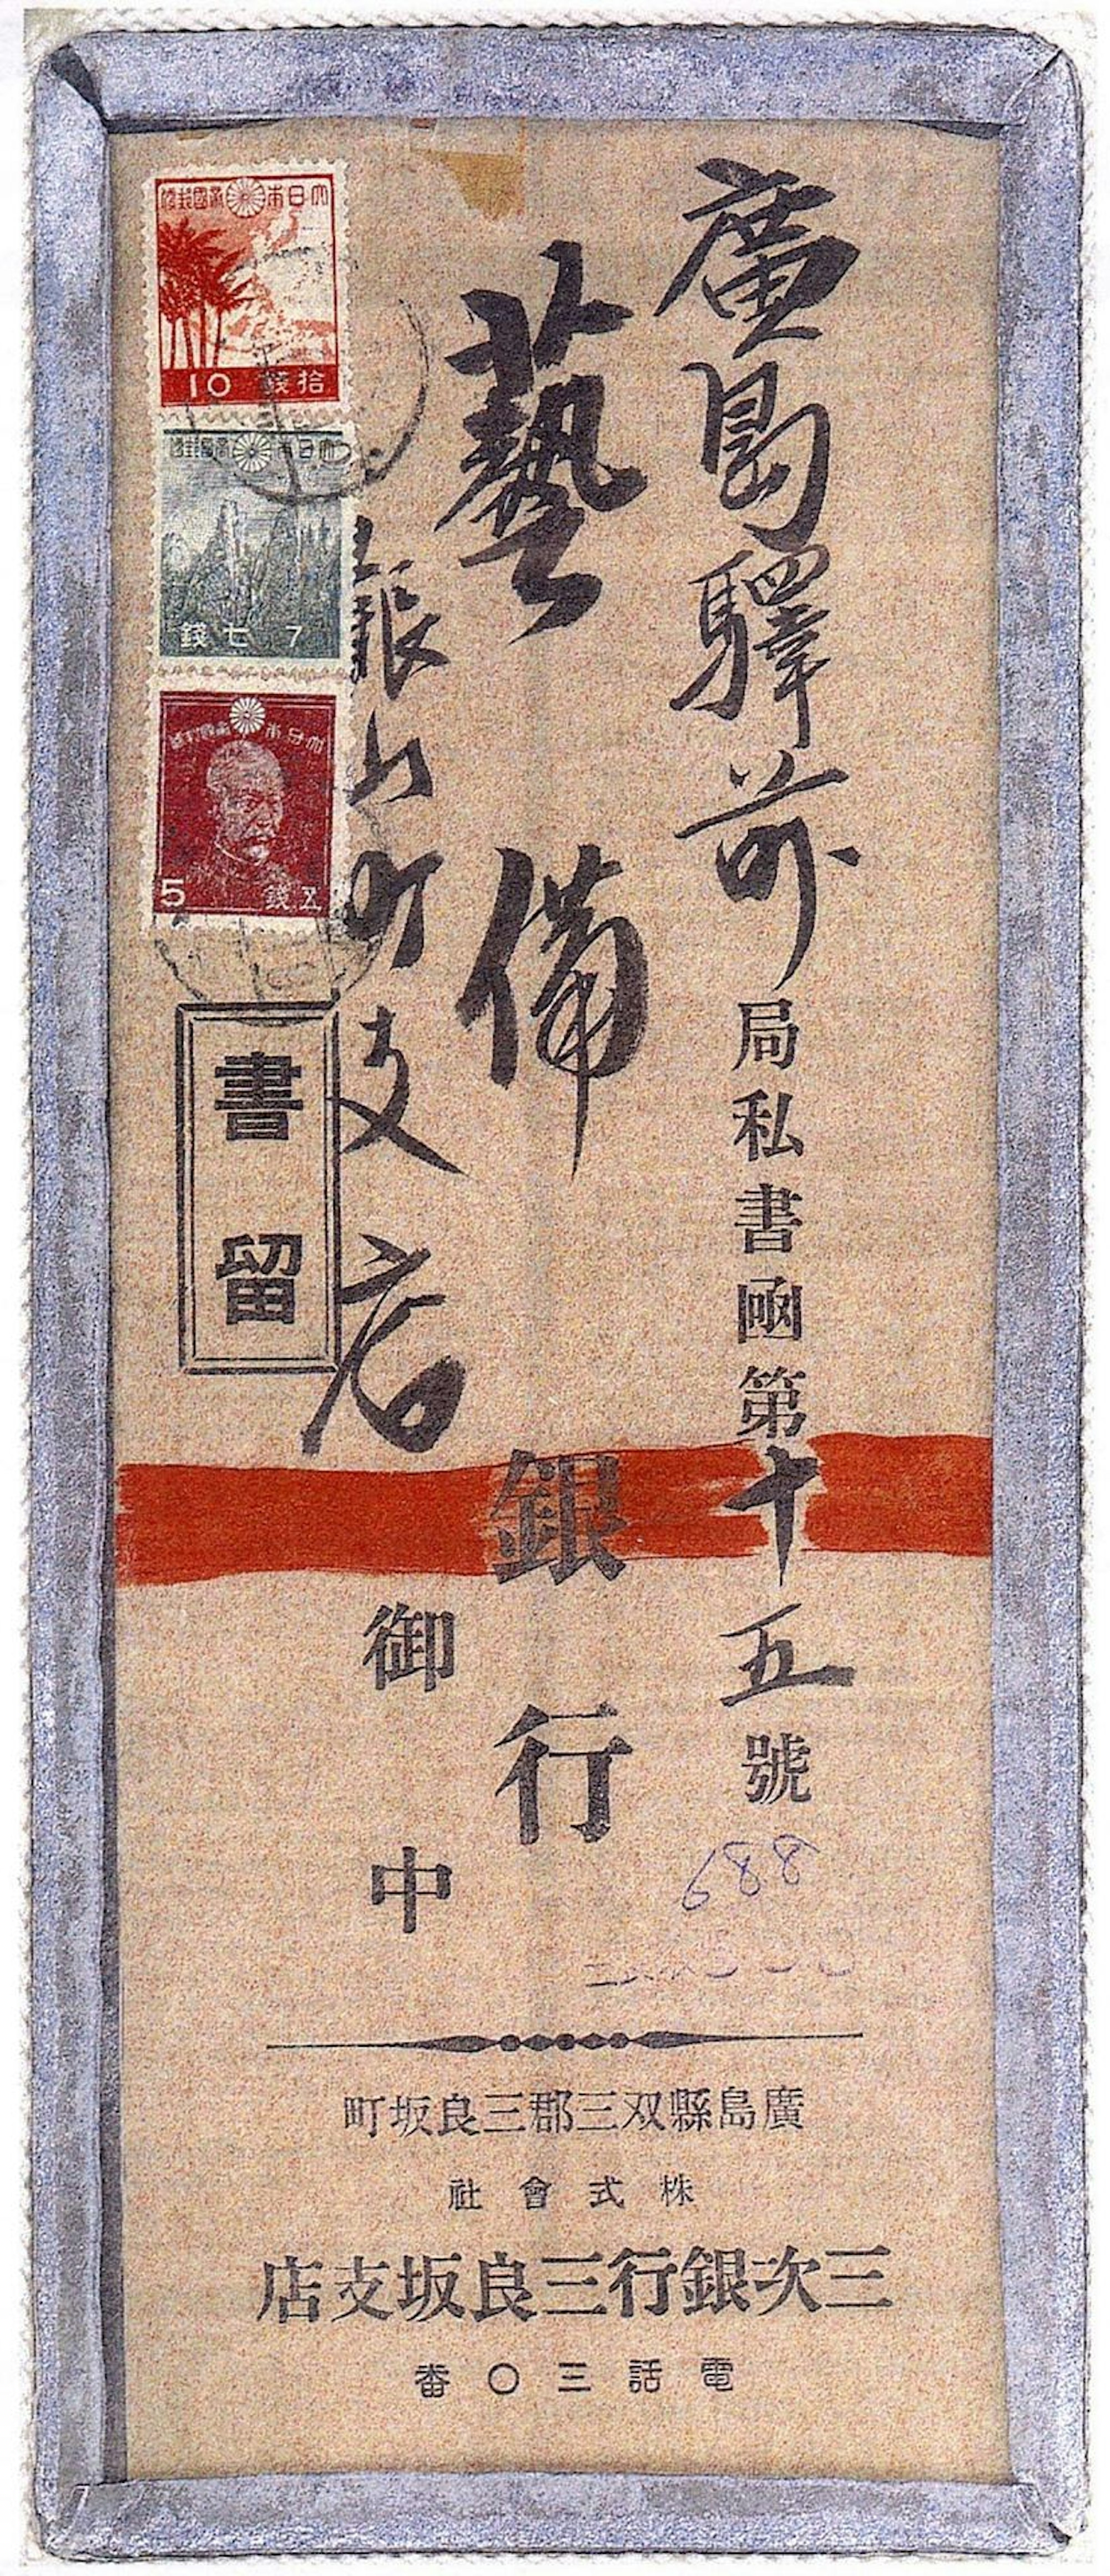 廣島驛前局私書凾第十五號
藝備銀行
銀山町支店御中
書留
大日本帝國郵便
10 拾錢
大日本帝國郵便
錢七 7
大日本帝國郵便
5 五錢
688
廣島縣双三郡三良坂町
株式會社
三次銀行三良坂支店
電話三〇番